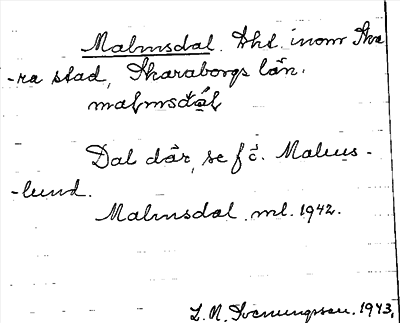 Malmsdal. Tht. inom Ska
-ra stad, Skaraborgs län.
malmsdal
Dal där, se f.ö. Malms-
-lund.
Malmsdal ml. 1942.
L. N. Svenungsson. 1943.